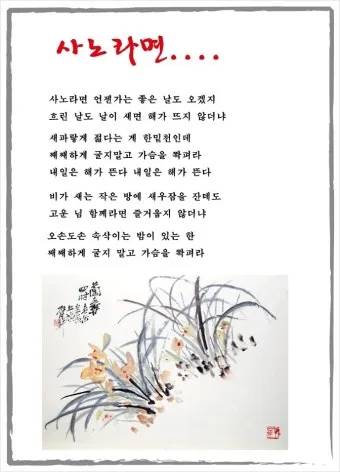 사노라면....
사노라면 언젠가는 좋은 날도 오겠지
흐린 날도 날이 새면 해가 뜨지 않더냐
새파랗게 젊다는 게 한밑천인데
째째하게 굴지말고 가슴을 쫙펴라
내일은 해가 뜬다 내일은 해가 뜬다
비가 새는 작은 방에 새우잠을 잔데도
고운 님 함께라면 즐거웁지 않더냐
오손도손 속삭이는 밤이 있는 한
째째하게 굴지 말고 가슴을 쫙펴라